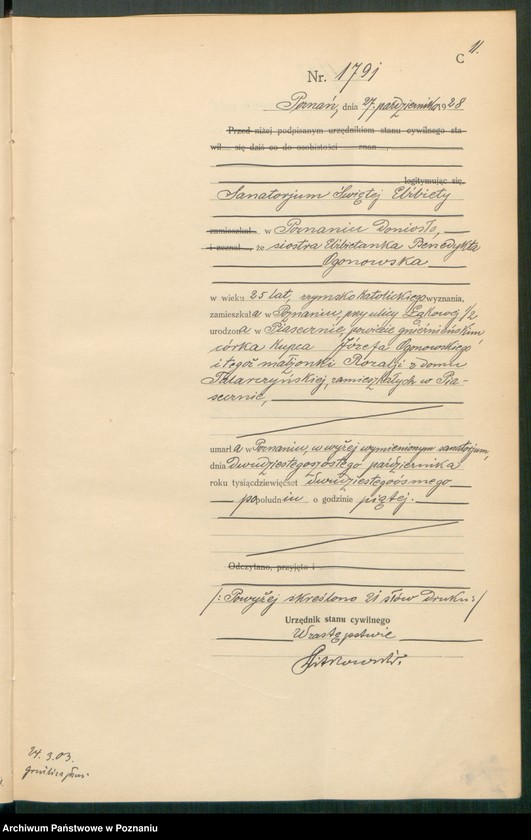 11.
C
Nr. 1791
Poznań, dnia 27. października 1928
Przed niżej podpisanym urzędnikiem stanu cywilnego sta-
wił się dziś co do osobistości znan
legitymując się
Sanatorjum Świętej Elżbiety
zamieszkał w Poznaniu doniosło,
i zeznał, że siostra Elżbietanka Benedykta
Ogonowska
w wieku 25 lat, rzymskokatolickiego wyznania,
zamieszkała w Poznaniu, przy ulicy Łąkowej 1/2
urodzona w powiecie gnieźnieńskim,
córka kupca Józefa Ogonowskiego
i tegoż małżonki Rozalji z domu
zamieszkałych w
umarła w Poznaniu, w wyżej wymienionym sanatorjum,
dnia dwudziestegoszóstego października
roku tysiącdziewięćset dwudziestegoósmego
popołudniu o godzinie piątej.
Odczytano, przyjęto i
/: Powyżej skreślono 21 słów druku :/
Urzędnik stanu cywilnego
W zastępstwie
24. 3. 03.
Archiwum Państwowe w Poznaniu